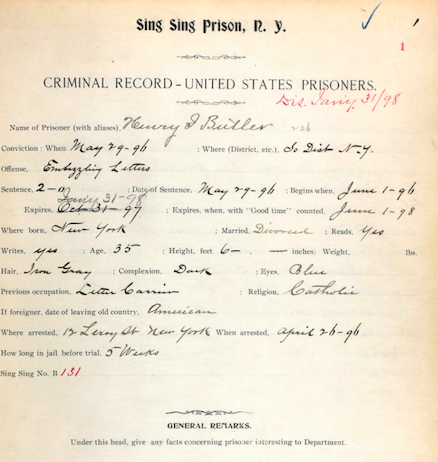 Sing Sing Prison, N. Y.
1
1
CRIMINAL RECORD–UNITED STATES PRISONERS.
Dis. Jan'y, 31/98
Name of Prisoner (with aliases), Henry J Butler 236
Conviction: When May 29-96 ; Where (District, etc.), So Dist N.Y.
Offense, Embizzling Letters
Sentence, 2-0 ; Date of Sentence, May 29-96 ; Begins when, June 1-96
Jany 31-98
Expires, Oct 31-97 ; Expires, when, with "Good time" counted, June 1-98
Where born, New York ; Married, Divorced ; Reads, Yes
Writes, yes ; Age, 35 ; Height, feet 6- - inches; Weight, lbs.
Hair, Iron Gray ; Complexion, Dark ; Eyes, Blue
Previous occupation, Letter Carrier ; Religion, Catholic
If foreigner, date of leaving old country, American
Where arrested, 12 Leroy St New York When arrested, April 26-96
How long in jail before trial, 5 Weeks
Sing Sing No. B 131
GENERAL REMARKS.
Under this head, give any facts concerning prisoner interesting to Department.